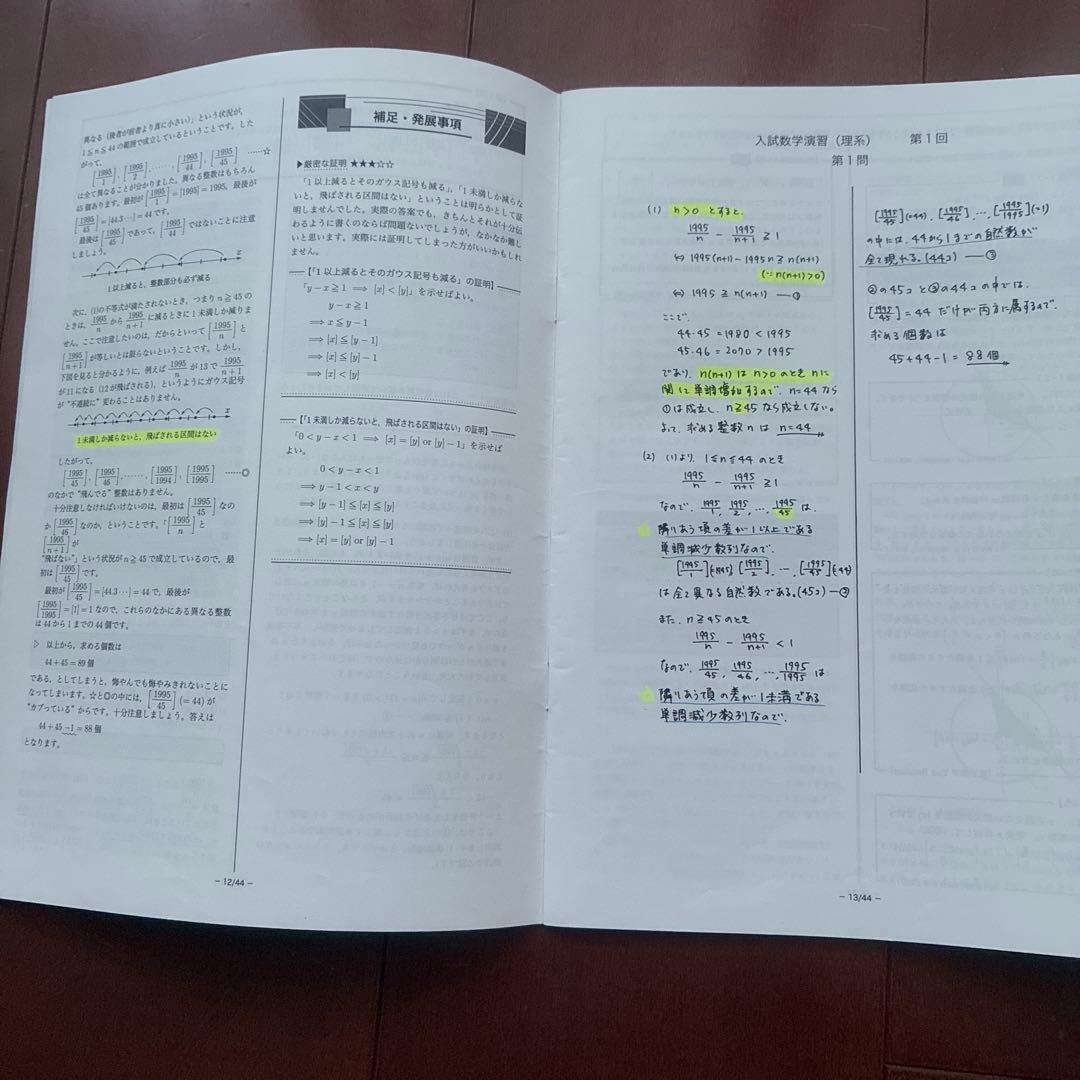 異なる（後者が前者より真に小さい）」という状況が，
1≦n≦44 の範囲で成立しているということです。した
がって，
[1995/1]，[1995/2]，……，[1995/44]，[1995/45] ……☆
は全て異なることが分かりました。異なる整数はもちろん
45個あります。最初が [1995/1] = [1995] = 1995，最後が
[1995/45] = [44.3…] = 44 です。
最後は [1995/45] であって，[1995/44] ではないことに注意
しましょう。
x
1以上減ると，整数部分も必ず減る
次に，(1)の不等式が満たされないとき，つまり n≧45 の
ときは，1995/n から 1995/(n+1) に減るときに1未満しか減りま
せん。ここで注意したいのは，だからといって [1995/n] と
[1995/(n+1)] が等しいとは限らないということです。しかし，
下図を見ると分かるように，例えば 1995/n が13で 1995/(n+1)
が11になる（12が飛ばされる），というようにガウス記号
が“不連続に”変わることはありません。
x
1未満しか減らないと，飛ばされる区間はない
したがって，
[1995/45]，[1995/46]，……，[1995/1994]，[1995/1995] ……◎
のなかで“飛んでる”整数はありません。
十分注意しなければいけないのは，最初は [1995/45] なの
か [1995/46] なのか，ということです。「[1995/n] と
[1995/(n+1)] が
“飛ばない”」という状況が n≧45 で成立しているので，最
初は [1995/45] です。
最初が [1995/45] = [44.3…] = 44 で，最後が
[1995/1995] = [1] = 1 なので，これらのなかにある異なる整数
は44から1までの44個です。
▷ 以上から，求める個数は
44 + 45 = 89 個
である，としてしまうと，悔やんでも悔やみきれないことに
なってしまいます。☆と◎の中には，[1995/45] (= 44) が
“カブっている”からです。十分注意しましょう。答えは
44 + 45 −1 = 88 個
となります。
− 12/44 −
補足・発展事項
▶厳密な証明 ★★★☆☆
「1以上減るとそのガウス記号も減る」，「1未満しか減らな
いと，飛ばされる区間はない」ということは明らかとして証
明しませんでした。実際の答案でも，きちんとそれが十分伝
わるように書くのならば問題ないでしょうが，なかなか難し
いと思います。実際には証明してしまった方がいいかもしれ
ません。
【「1以上減るとそのガウス記号も減る」の証明】
「y − x ≧ 1 ⟹ [x] < [y]」を示せばよい。
y − x ≧ 1
⟹ x ≦ y − 1
⟹ [x] ≦ [y − 1]
⟹ [x] ≦ [y] − 1
⟹ [x] < [y]
【「1未満しか減らないと，飛ばされる区間はない」の証明】
「0 < y − x < 1 ⟹ [x] = [y] or [y] − 1」を示せば
よい。
0 < y − x < 1
⟹ y − 1 < x < y
⟹ [y − 1] ≦ [x] ≦ [y]
⟹ [y] − 1 ≦ [x] ≦ [y]
⟹ [x] = [y] or [y] − 1
入試数学演習（理系） 第1回
第1問
(1) n>0 とすると，
1995/n − 1995/(n+1) ≧ 1
⇔ 1995(n+1) − 1995n ≧ n(n+1)
(∵ n(n+1)>0)
⇔ 1995 ≧ n(n+1) ―①
ここで，
44・45 = 1980 < 1995
45・46 = 2070 > 1995
であり，n(n+1) は n>0 のとき nに
関して単調増加するので，n=44 なら
①は成立し，n≧45 なら成立しない。
よって，求める整数 n は n=44
(2) (1)より，1≦n≦44 のとき
1995/n − 1995/(n+1) ≧ 1
なので，1995/1，1995/2，…，1995/45 は，
隣りあう項の差が1以上である
単調減少数列なので，
[1995/1](=1995)，[1995/2]，…，[1995/45](=44)
は全て異なる自然数である。(45コ) ―②
また，n≧45 のとき
1995/n − 1995/(n+1) < 1
なので，1995/45，1995/46，…，1995/1995 は
隣りあう項の差が1未満である
単調減少数列なので，
[1995/45](=44)，[1995/46]，…，[1995/1995](=1)
の中には，44から1までの自然数が
全て現れる。(44コ) ―③
②の45コと③の44コの中では，
[1995/45] = 44 だけが両方に属するので，
求める個数は
45+44−1 = 88個
− 13/44 −